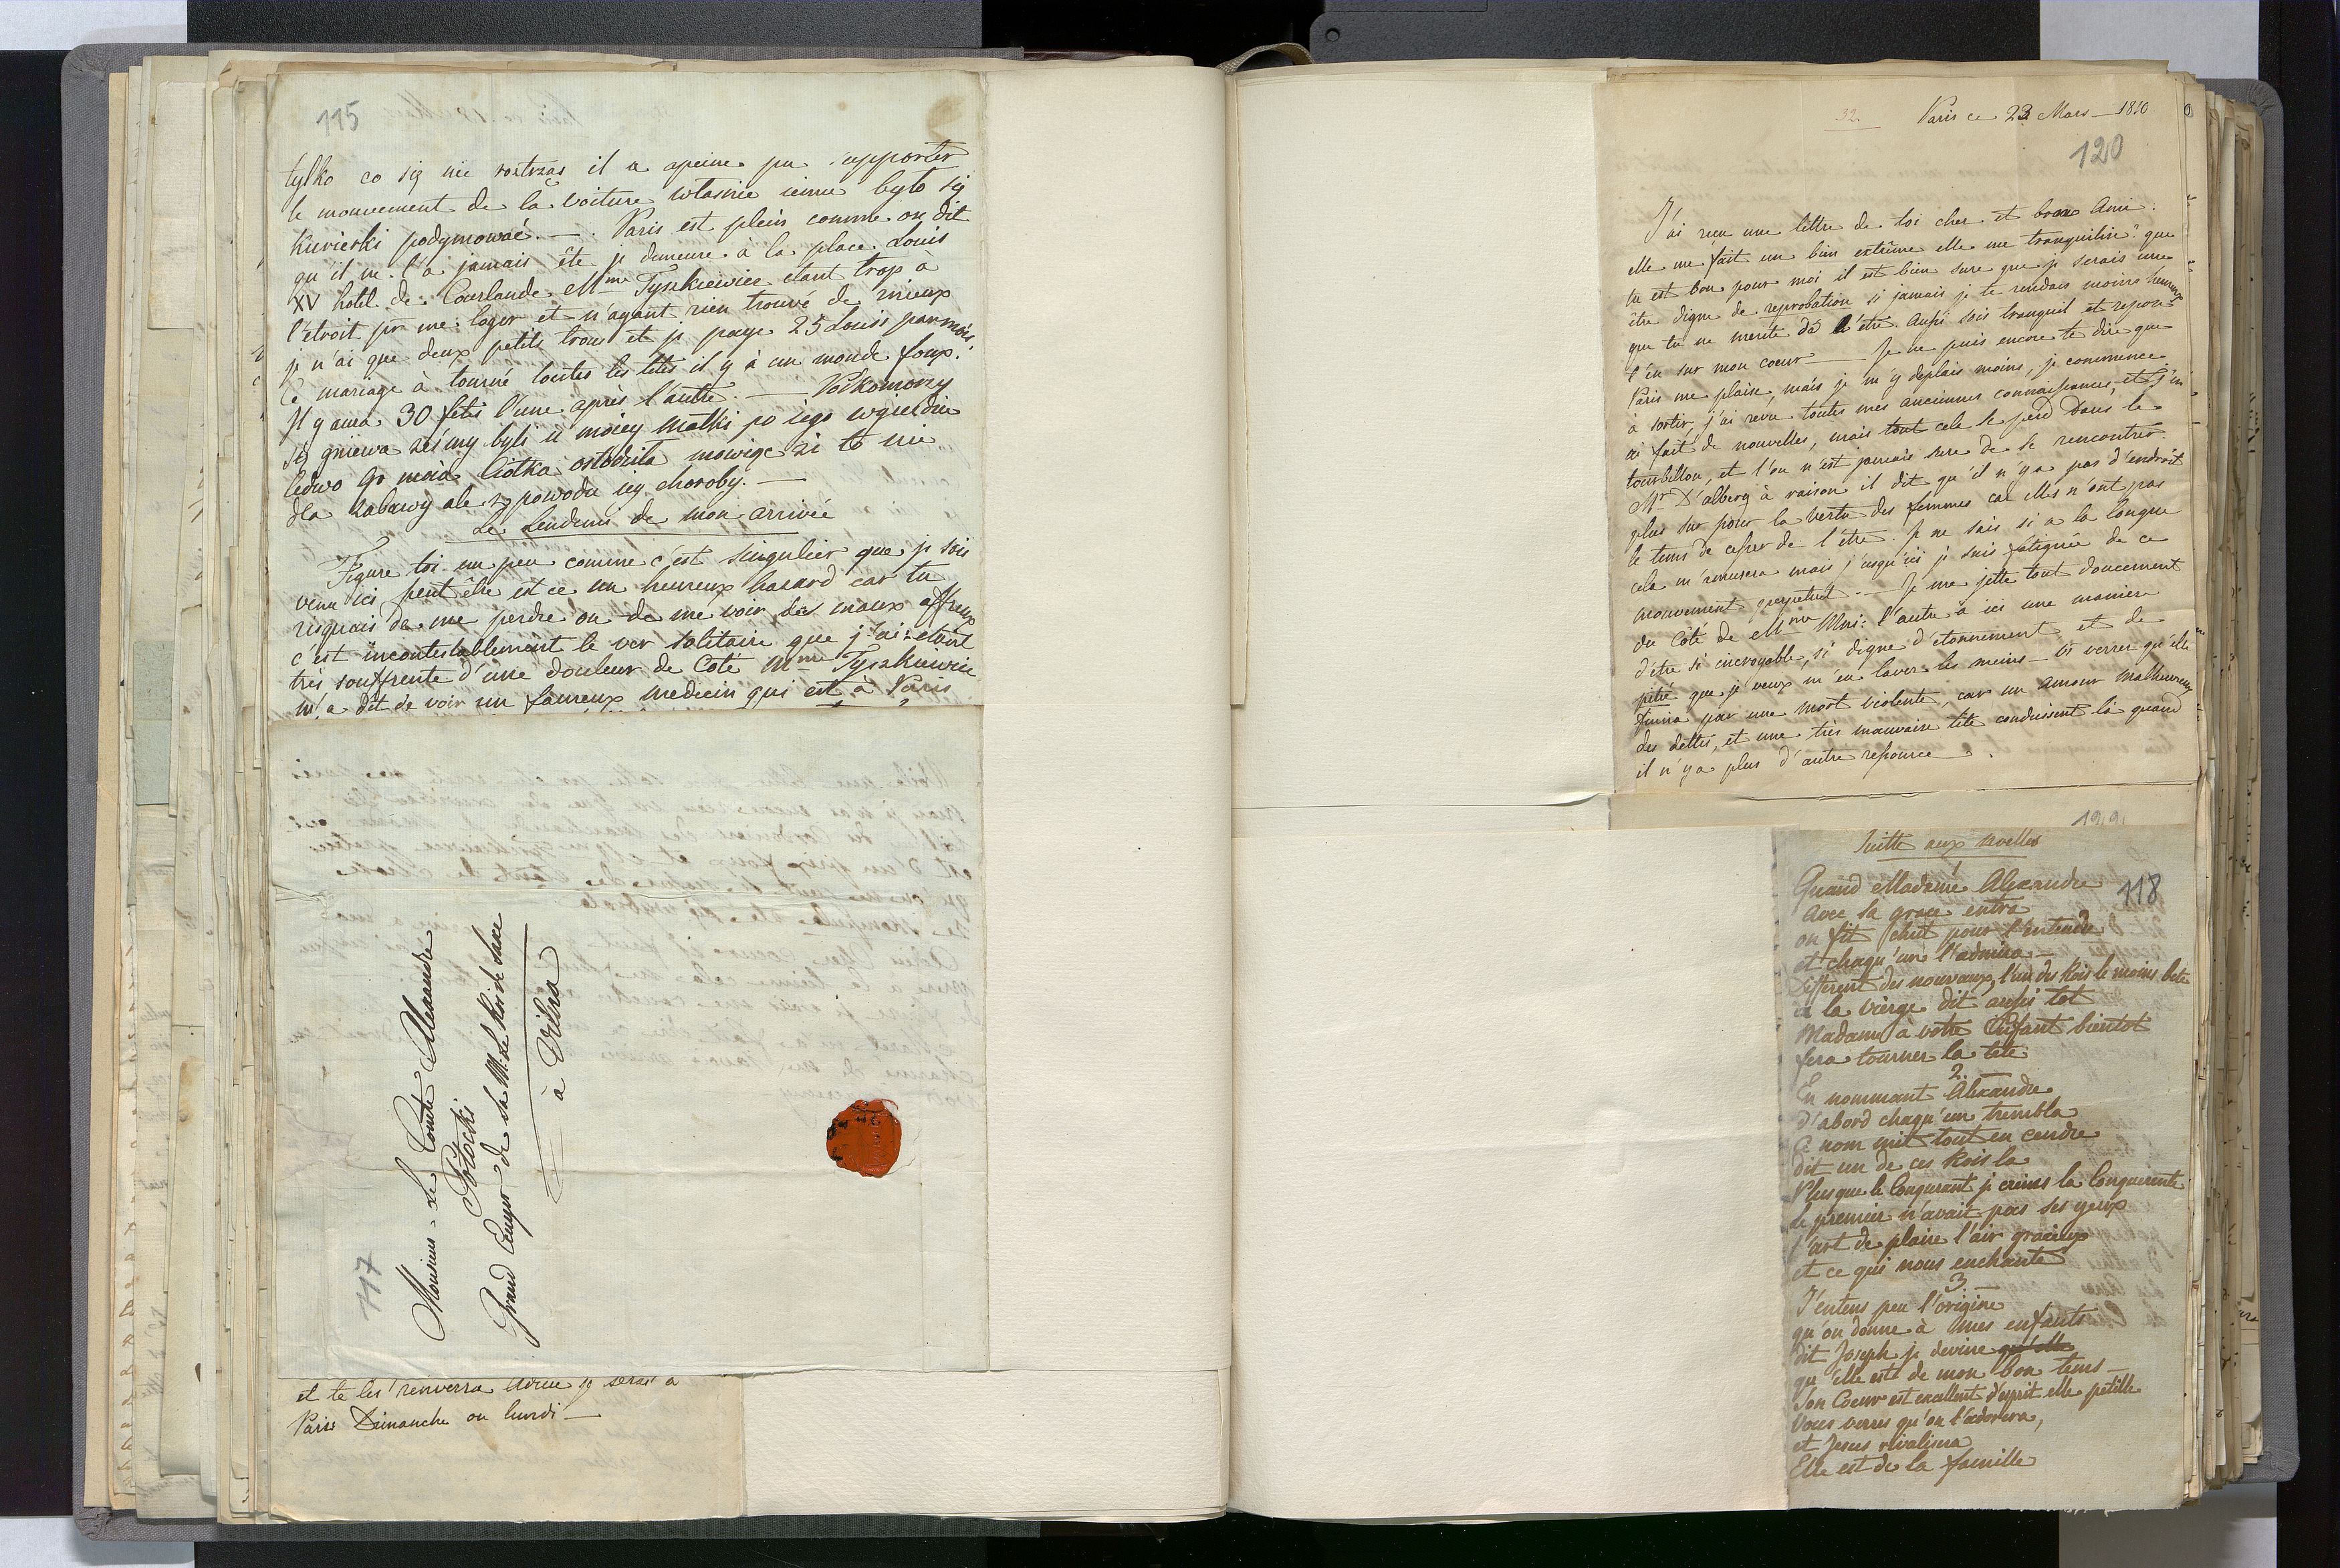 115
tylko co się nie rostrząs il a apeine pu supporter
le mouvement de la voiture własnie ieinu było się
Kuricrki podymować. — . Paris est plein comme on dit
qu'il ne l'a jamais été je demeure à la place Louis
XV hotel de Courlande Mme Tyszkiewicz etant trop à
l'etroit pr me loger et n'ayant rien trouvé de mieux
je n'ai que deux petits trous et je paye 25 Louis par mois.
Ce mariage à tourné toutes les tetes il y à un monde foux.
Il y aura 30 fetes l'une après l'autre. — Podkomorzy
się gniewa żeśmy byli u moiey Matki po iego wyieździe
ledwo go moia Ciotka osłodziła mowiąc że to nie
dla zabawy ale z powodu iey choroby. —
Le Lendemi de mon arrivée
Figure toi un peu comme c'est singulier que je sois
venu ici peut être est ce un heureux hazard car tu
risquais de me perdre ou de me voir des maux affreux
c'est incontestablement le ver solitaire que j'ai: etant
très souffrente d'une douleur de Coté Mme Tyszkiewicz
m'a dit de voir un fameux medecin qui est à Paris
Monsieur Le Comte Alexandre
Potocki
Grand Ecuyer de Sa M. Le Roi de Saxe
à Vilna
117
et te les renverra Adieu je serai à
Paris Dimanche ou lundi —
32.
Paris ce 23 Mars — 1810
120
J'ai reçu une lettre de toi cher et bon Ami.
elle me fait un bien extrême elle me tranquilise: que
tu est bon pour moi il est bien sure que je serais une
être digne de reprobation si jamais je te rendais moins heureux
que tu ne merite de l'être. Aussi sois tranquil et repose
t'en sur mon coeur — Je ne puis encore te dire que
Paris me plaise, mais je m'y deplais moins, je commence
à sortir, j'ai revu toutes mes anciennes connaissances et j'en
ai fait de nouvelles, mais tout cela se perd dans le
tourbillon, et l'on n'est jamais sure de se rencontrer.
Mr D'alberg à raison il dit qu'il n'y a pas d'endroit
plus sur pour la vertu des femmes car elles n'ont pas
le tems de cesser de l'etre. Je ne sais si a la longue
cela m'amusera mais j'usqu'ici je suis fatiguée de ce
mouvement perpetuel. — Je me jette tout doucement
du Côté de Mme Mni: l'autre à ici une maniere
d'être si incroyable, si digne d'etonnement et de
pitié que je veux m'en laver les mains — Vs verrez qu'elle
finira par une mort violente, car un amour malheureux
des dettes, et une tres mauvaise tête conduisent là quand
il n'y a plus d'autre resource.
119.
Suitte aux noelles
118
Quand Madame Alexandre
Avec sa grace entra
on fit chut pour l'entendre
et chaqu'un l'admira —
Different des nouveaux, l'un des Rois le moins bete
à la vierge dit aussi tot
Madame a votre Enfant bientot
fera tourner la tete
2.
En nommant Alexandre
d'abord chaqu'un trembla
Ce nom met tout en cendre
dit un de ces Rois la
Plus que le Conquerant je crains la Conquerente
Le premier n'avait pas ses yeux
l'art de plaire l'air gracieux
et ce qui nous enchante
3. —
J'entens peu l'origine
qu'on donne à mes enfants
dit Joseph je devine qu'elle
qu'elle est de mon bon tems —
Son Coeur est excellent d'esprit elle petille
Vous verres qu'on l'adorera,
et Jesus rivalisera
Elle est de la famille